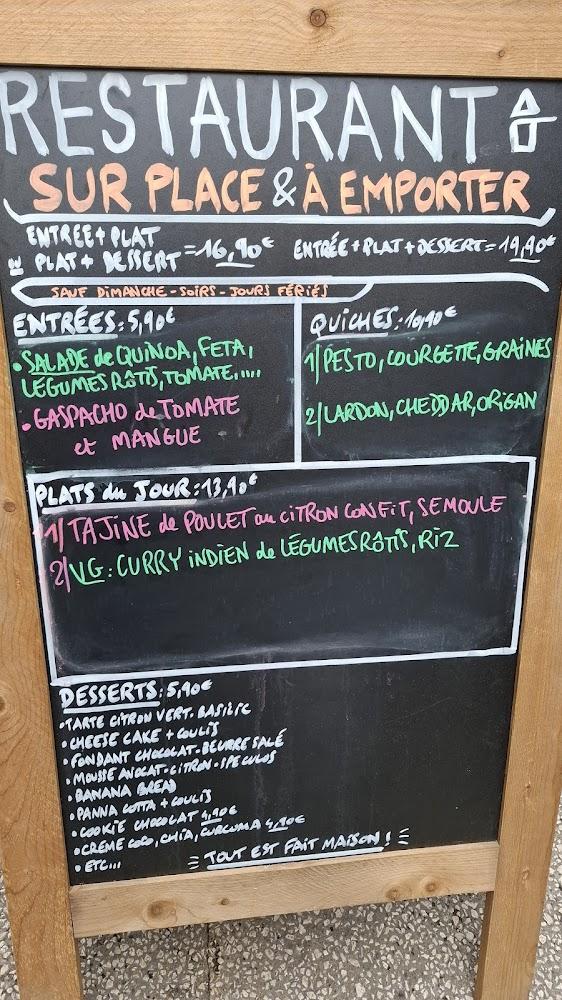 RESTAURANT
SUR PLACE & À EMPORTER
ENTREE + PLAT
OU PLAT + DESSERT = 16,90€
ENTRÉE + PLAT + DESSERT = 19,90€
SAUF DIMANCHE - SOIRS - JOURS FÉRIÉS
ENTRÉES: 5,90€
• SALADE de QUINOA, FETA,
LÉGUMES RÔTIS, TOMATE,....
• GASPACHO de TOMATE
et MANGUE
QUICHES: 10,90€
1/ PESTO, COURGETTE, GRAINES
2/ LARDON, CHEDDAR, ORIGAN
PLATS du JOUR: 13,90€
1/ TAJINE de POULET au CITRON CONFIT, SEMOULE
2/ VG: CURRY INDIEN de LÉGUMES RÔTIS, RIZ
DESSERTS: 5,90€
• TARTE CITRON VERT. BASILIC
• CHEESE CAKE + COULIS
• FONDANT CHOCOLAT. BEURRE SALÉ
• MOUSSE AVOCAT. CITRON. SPECULOS
• BANANA BREAD
• PANNA COTTA + COULIS
• COOKIE CHOCOLAT 4,90€
• CRÈME COCO, CHIA, CURCUMA 4,90€
• ETC...
TOUT EST FAIT MAISON!